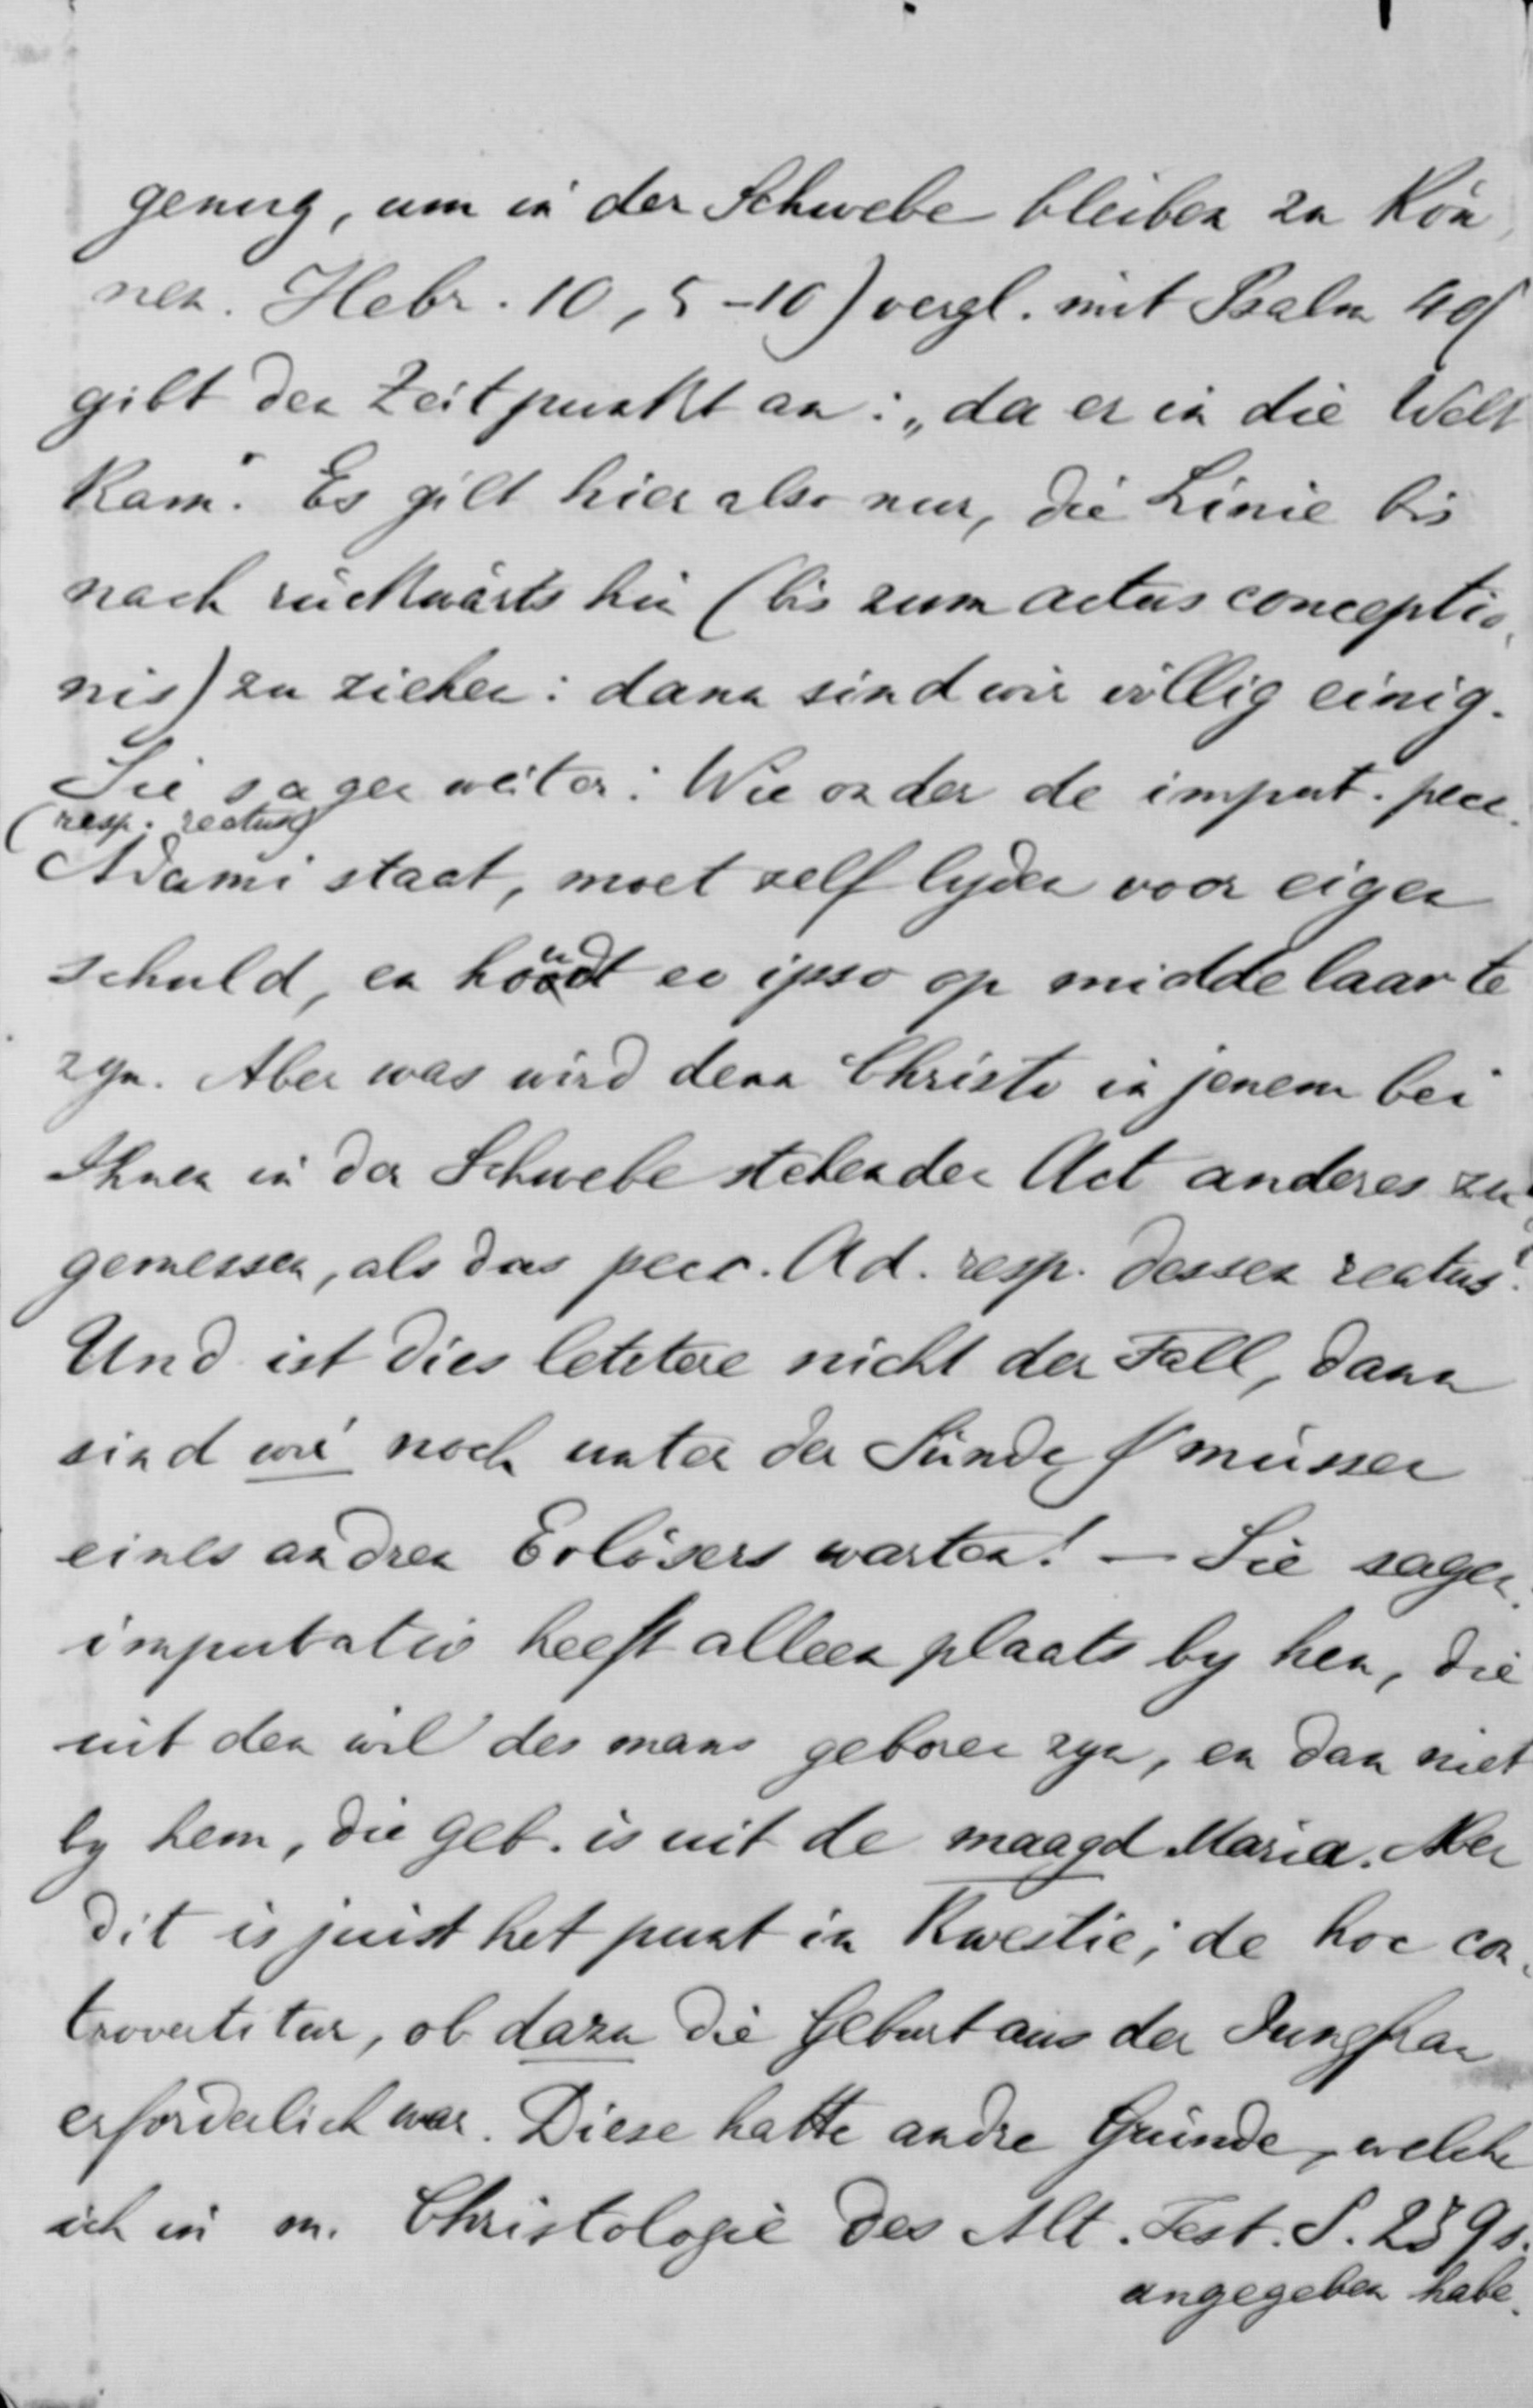 genug, um in der Schwebe bleiben zu kön-
nen. Hebr. 10, 5-10) vergl. mit Psalm 40(
gibt den Zeitpunkt an: „da er in die Welt
kam". Es gilt hier also nur, die Linie bis
nach rückwärts hin (bis zum actus conceptio-
nis) zu ziehen: dann sind wir völlig einig.
Sie sagen weiter: Wie onder de imput. pecc.
(resp. reatus)
Adami staat, moet zelf lyden voor eigen
schuld, en houdt eo ipso op middelaar te
zyn. Aber was wird denn Christo in jenem bei
Ihnen in der Schwebe stehenden Act anderes zu-
gemessen, als das pecc. Ad. resp. dessen reatus?
Und ist dies letztere nicht der Fall, dann
sind wir noch unter der Sünde & müssen
eines andren Erlösers warten! — Sie sagen:
imputatio heeft alleen plaats by hen, die
uit den wil des mans geboren zyn, en dan niet
by hem, die geb. is uit de maagd Maria. Aber
dit is juist het punt in kwestie; de hoc con-
trovertitur, ob dazu die Geburt aus der Jungfrau
erforderlich war. Diese hatte andre Gründe, welche
ich in m. Christologie des Alt. Test. S. 259s.
angegeben habe.